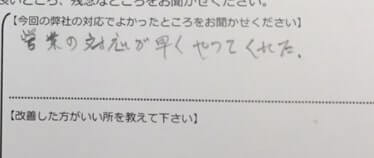 良いところ、残念なところをお聞かせください。
【今回の弊社の対応でよかったところをお聞かせください】
営業の対応が早くやってくれた.
【改善した方がいい所を教えて下さい】